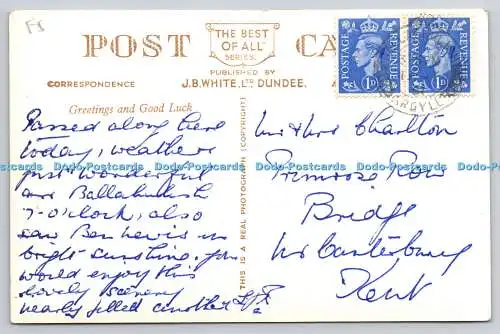 F8
POST CA
THE BEST
OF ALL
SERIES.
PUBLISHED BY
J.B. WHITE, LTD DUNDEE.
CORRESPONDENCE
Greetings and Good Luck
Passed along here
today, weather
just wonderful
over Ballahulish
7-o'clock, also
saw Ben Nevis in
bright sunshine, you
would enjoy this
lovely scenery
nearly filled another
THIS IS A REAL PHOTOGRAPH (COPYRIGHT)
POSTAGE REVENUE
1D
POSTAGE REVENUE
1D
ARGYLL
Mr & Mrs Charlton
Primrose Row
Bridge
Nr Canterbury
Kent
Dodo-Postcards Dodo-Postcards Dodo-Postcards Dodo-Postcards Dodo-Postcards